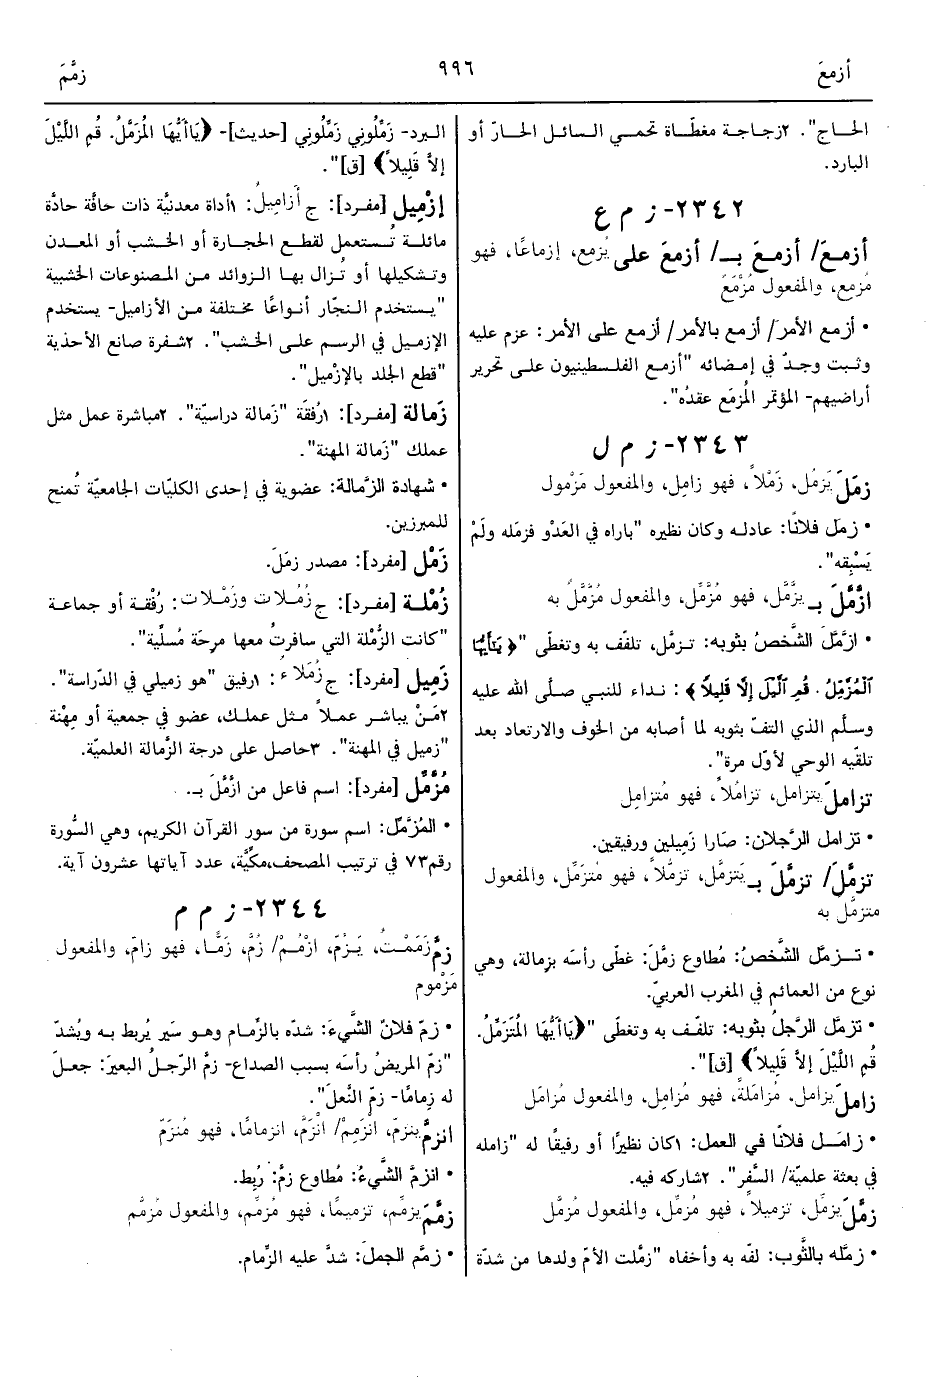 أزمعَ
٩٩٦
زمَّمَ
الحاج". ٢زجاجة مغطّاة تحمي السائل الحارّ أو
البارد.
٢٣٤٢- ز م ع
أزمعَ/ أزمعَ بـ/ أزمعَ على يُزمع، إزماعًا، فهو
مُزمِع، والمفعول مُزْمَعٌ
• أزمع الأمرَ/ أزمع بالأمر/ أزمع على الأمر: عزم عليه
وثبت وجدّ في إمضائه "أزمع الفلسطينيون على تحرير
أراضيهم- المؤتمر المُزمَع عقدُه".
٢٣٤٣- ز م ل
زمَلَ يَزمُل، زَمْلاً، فهو زامِل، والمفعول مَزْمول
• زمَل فلانًا: عادله وكان نظيره "باراه في العَدْو فزمَله ولَمْ
يَسْبِقه".
ازَّمَّلَ بـ يزَّمَّل، فهو مُزَّمِّل، والمفعول مُزَّمَّلٌ به
• ازمَّلَ الشَّخصُ بثوبه: تزمَّل، تلفّف به وتغطّى "﴿يَٰٓأَيُّهَا
ٱلْمُزَّمِّلُ. قُمِ ٱلَّيْلَ إِلَّا قَلِيلًا﴾: نداء للنبي صلّى الله عليه
وسلّم الذي التفّ بثوبه لما أصابه من الخوف والارتعاد بعد
تلقيه الوحي لأوّل مرة".
تزاملَ يتزامل، تزامُلاً، فهو مُتزامِل
• تزامل الرَّجلان: صَارا زَمِيلين ورفيقين.
تزمَّلَ/ تزمَّلَ بـ يَتزمَّل، تزمُّلاً، فهو مُتزَمِّل، والمفعول
متزمَّل به
• تزمَّل الشَّخصُ: مُطاوع زمَّلَ: غطّى رأسَه بزمالة، وهي
نوع من العمائم في المغرب العربيّ.
• تزمَّل الرَّجلُ بثوبه: تلفّف به وتغطّى "﴿يَاأَيُّهَا المُتَزَمِّلُ.
قُم اللَّيْلَ إلاَّ قَلِيلاً﴾ [ق]".
زاملَ يزامل، مُزامَلةً، فهو مُزامِل، والمفعول مُزامَل
• زامَل فلانًا في العمل: ١كان نظيرًا أو رفيقًا له "زامله
في بعثة علميّة/ السَّفر". ٢شاركه فيه.
زمَّلَ يزمِّل، تزميلاً، فهو مُزمِّل، والمفعول مُزمَّل
• زمَّله بالثَّوب: لفّه به وأخفاه "زمَّلت الأمّ ولدها من شدّة
البرد- زَمِّلُوني زَمِّلُوني [حديث]- ﴿يَاأَيُّهَا المُزَمَّلُ. قُم اللَّيْلَ
إلاَّ قَلِيلاً﴾ [ق]".
إزْمِيل [مفرد]: ج أزامِيلُ: ١أداة معدنيَّة ذات حافَّة حادَّة
مائلة تُستعمل لقطع الحجارة أو الخشب أو المعدن
وتشكيلها أو تُزال بها الزوائد من المصنوعات الخشبية
"يستخدم النجّار أنواعًا مختلفة من الأزاميل- يستخدم
الإزميل في الرسم على الخشب". ٢شفرة صانع الأحذية
"قطع الجلد بالإزْميل".
زَمالة [مفرد]: ١رُفقَة "زَمالة دراسيّة". ٢مباشرة عمل مثل
عملك "زَمالة المهنة".
• شهادة الزَّمالة: عضوية في إحدى الكليّات الجامعيّة تُمنح
للمبرزين.
زَمْل [مفرد]: مصدر زمَلَ.
زُمْلة [مفرد]: ج زُمُلات وزُمْلات: رُفْقة أو جماعة
"كانت الزُّمْلة التي سافرتُ معها مرحَة مُسلِّية".
زَمِيل [مفرد]: ج زُمَلاءُ: ١رفيق "هو زميلي في الدّراسة".
٢مَنْ يباشر عملاً مثل عملك، عضو في جمعية أو مِهْنة
"زميل في المهنة". ٣حاصل على درجة الزَّمالة العلميّة.
مُزَّمِّل [مفرد]: اسم فاعل من ازَّمَّلَ بـ.
• المُزَّمِّل: اسم سورة من سور القرآن الكريم، وهي السُّورة
رقم٧٣ في ترتيب المصحف،مكيَّة، عدد آياتها عشرون آية.
٢٣٤٤- ز م م
زمَّ زَمَمْتُ، يَزُمّ، ازْمُمْ/ زُمَّ، زَمًّا، فهو زامّ، والمفعول
مَزْموم
• زمّ فلانٌ الشَّيءَ: شدّه بالزّمام وهو سَير يُربط به ويُشدّ
"زمّ المريضُ رأسَه بسبب الصداع- زمَّ الرّجلُ البعيرَ: جعلَ
له زِمامًا- زمّ النَّعلَ".
انزمَّ ينزمّ، انْزمِمْ/ انْزَمَّ، انزمامًا، فهو مُنزَمّ
• انزمَّ الشَّيءُ: مُطاوع زمَّ: رُبط.
زمَّمَ يزمِّم، تزميمًا، فهو مُزمِّم، والمفعول مُزمَّم
• زمَّم الجملَ: شدَّ عليه الزّمام.